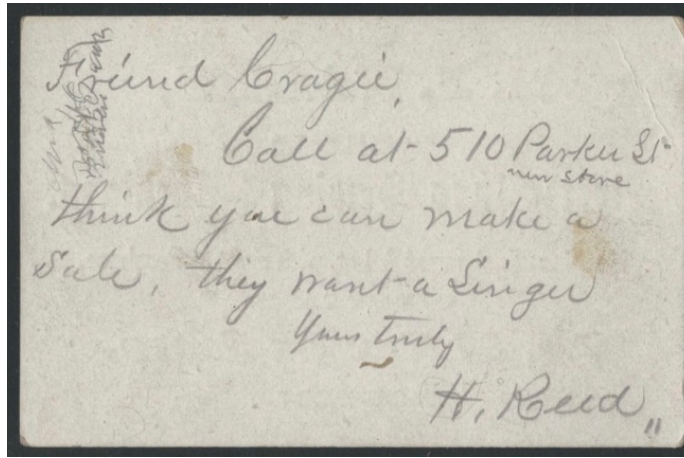 Friend Cragie,
Call at 510 Parker St
new store
think you can make a
sale, they want a Singer
Yours Truly
H. Reed